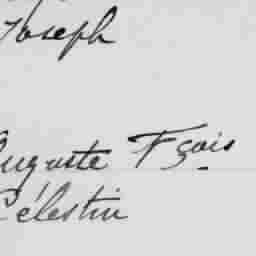 Joseph
Auguste Fçois
Célestin